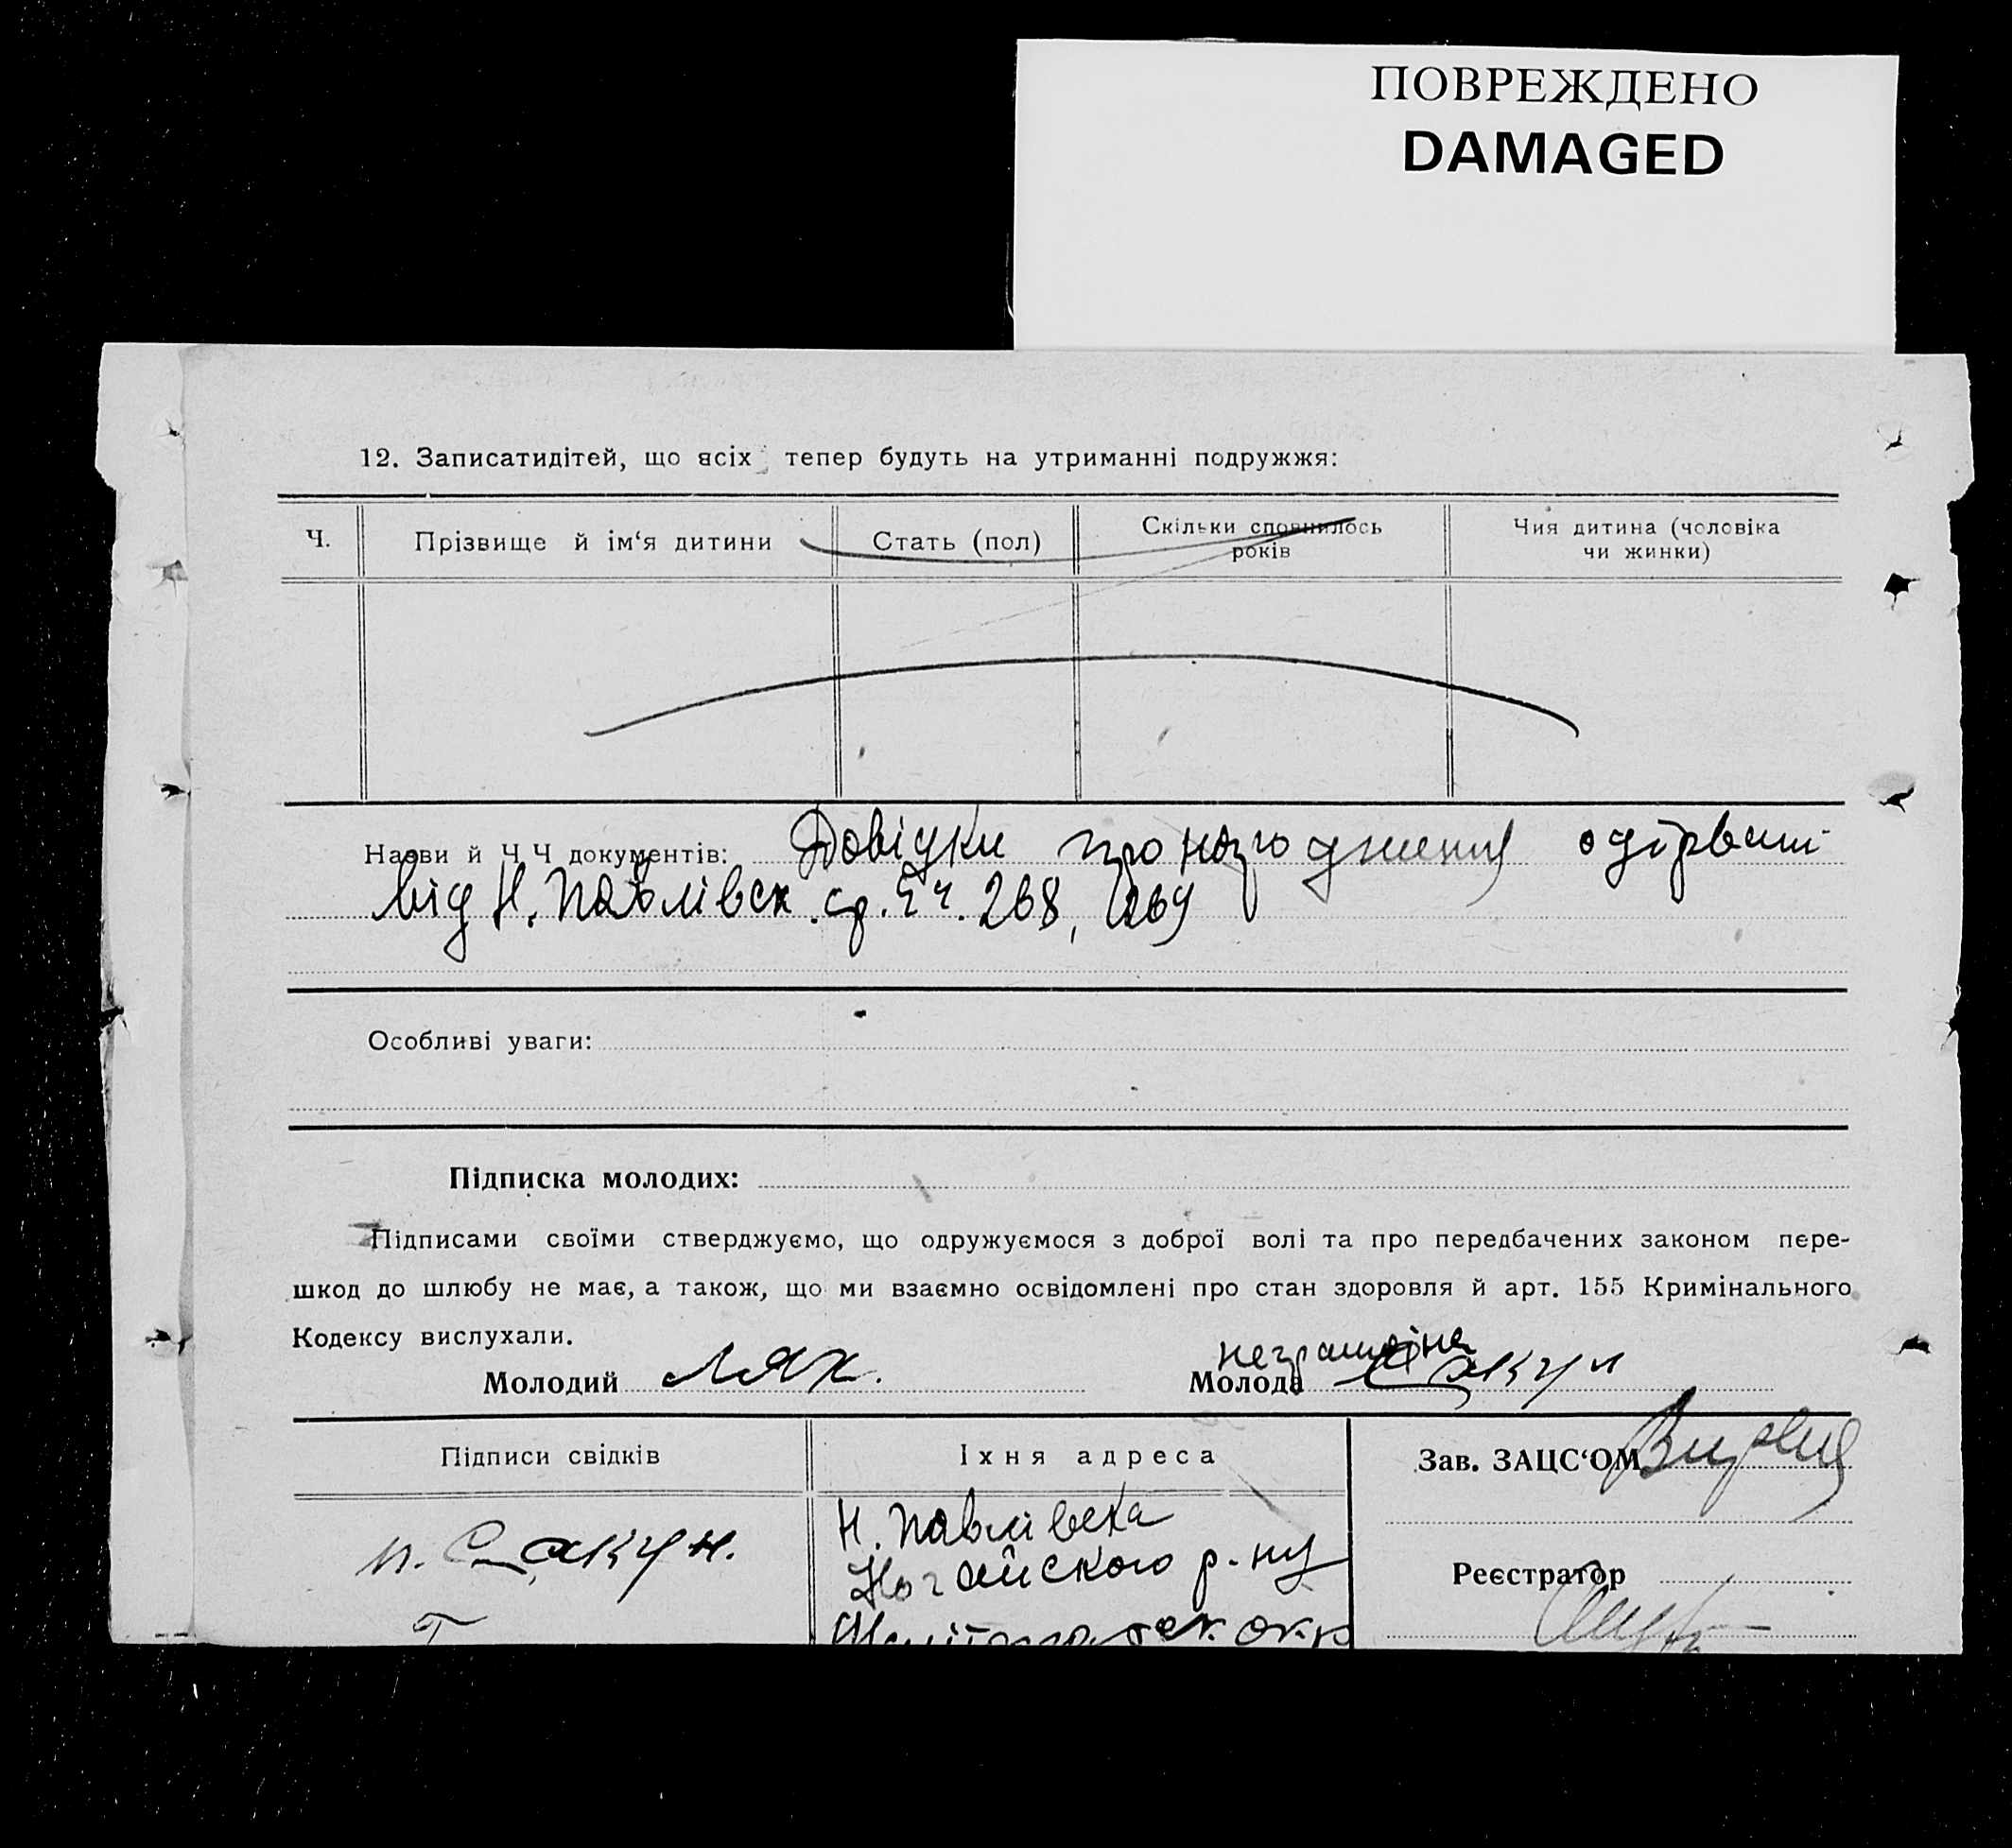 ПОВРЕЖДЕНО
DAMAGED
12. Записатидітей, що всіх тепер будуть на утриманні подружжя:
Ч.
Прізвище й ім‘я дитини
Стать (пол)
Скільки сповнилось
років
Чия дитина (чоловіка
чи жинки)
Назви й Ч Ч документів: Довідки про народження одірвані
від Н. Павлівск. ср. 268, 269
Особливі уваги:
Підписка молодих:
Підписами своїми стверджуємо, що одружуємося з доброї волі та про передбачених законом пере-
шкод до шлюбу не має, а також, що ми взаємно освідомлені про стан здоровля й арт. 155 Кримінального
Кодексу вислухали.
неграмотна
Молодий Лях. Молода Сакун
Підписи свідків
Їхня адреса
Зав. ЗАЦС‘ОМ
п. Сакун.
Н. Павлівека
Ногайского р-ну
Реєстратор